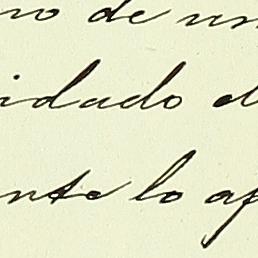 no de un
idado el
nte lo ap